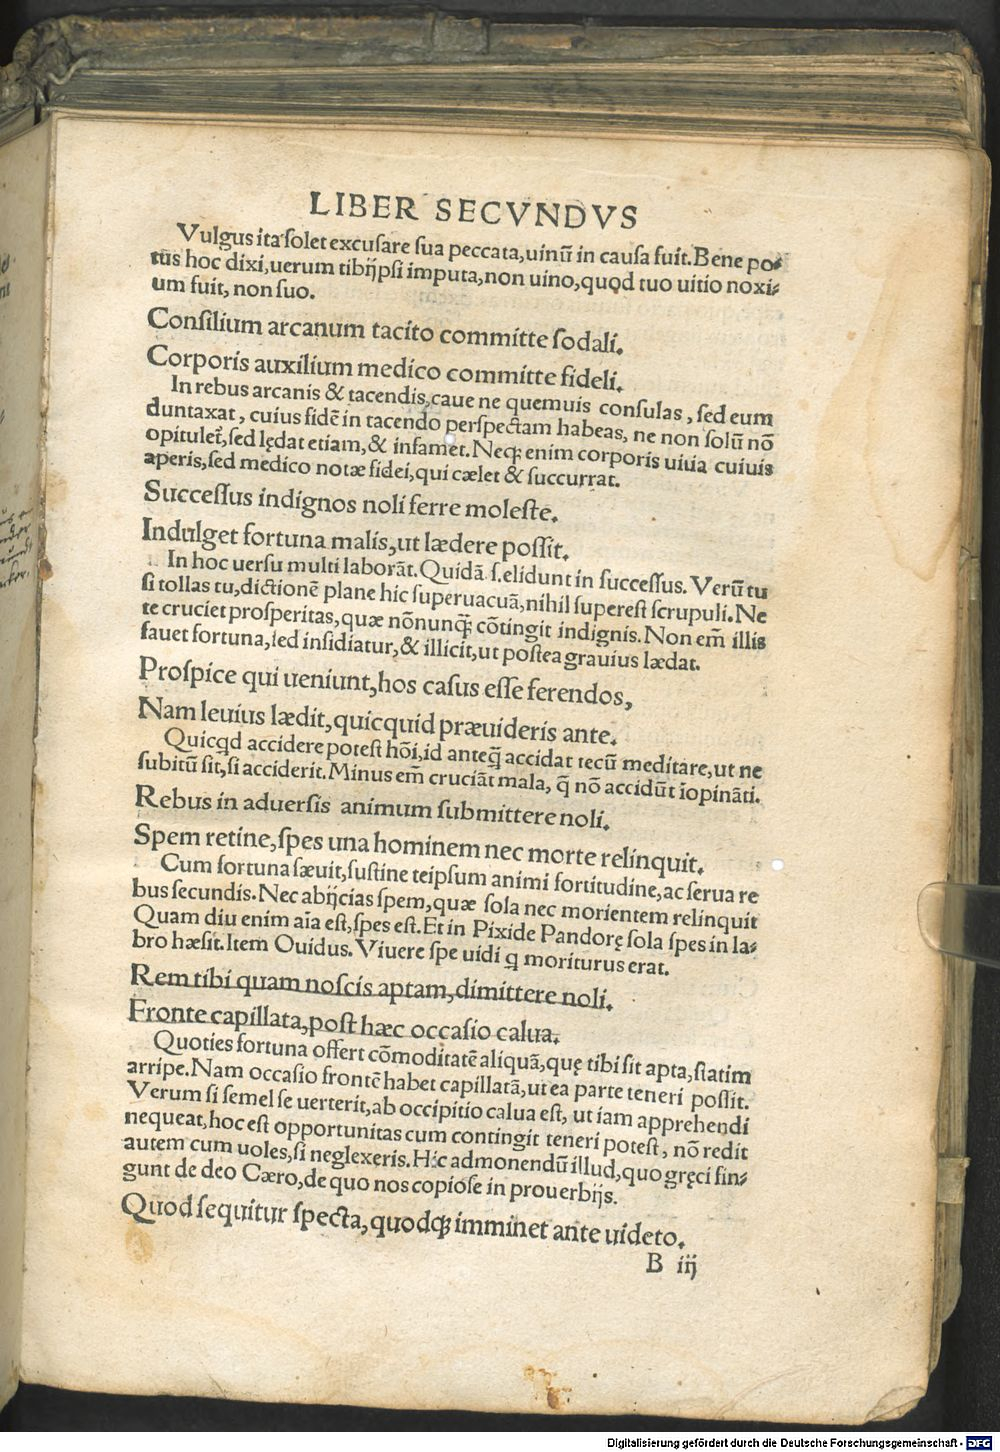 LIBER SECVNDVS
Vulgus ita ſolet excuſare ſua peccata,uinū in cauſa fuit.Bene po⸗
tus hoc dixi,uerum tibijpſi imputa,non uino,quod tuo uitio noxi⸗
um fuit, non ſuo.
Conſilium arcanum tacito committe ſodali.
Corporis auxilium medico committe fideli.
In rebus arcanis & tacendis,caue ne quemuis conſulas, ſed eum
duntaxat, cuius fidē in tacendo perſpectam habeas, ne non ſolū nō
opituleť,ſed lędat etiam,& infamet.Neqꝫ enim corporis uitia cuiuis
aperis,ſed medico notæ fidei,qui cælet & ſuccurrat.
Succeſſus indignos noli ferre moleſte.
Indulget fortuna malis,ut lædere poſſit.
In hoc uerſu multi laborāt.Quidā ſ.elidunt in ſucceſſus. Verū tu
ſi tollas tu,dictionē plane hic ſuperuacuā,nihil ſupereſt ſcrupuli.Ne
te cruciet proſperitas,quæ nōnunqꝫ cōtingit indignis.Non em̄ illis
fauet fortuna,ſed inſidiatur,& illicit,ut poſtea grauius lædat.
Proſpice qui ueniunt,hos caſus eſſe ferendos,
Nam leuius lædit,quicquid præuideris ante.
Quicqd accidere poteſt hōi,id anteq̄ accidat tecū meditare,ut ne
ſubitū ſit,ſi acciderit.Minus em̄ cruciāt mala, q̄ nō accidūt īopināti.
Rebus in aduerſis animum ſubmittere noli.
Spem retine,ſpes una hominem nec morte relinquit.
Cum fortuna ſæuit,ſuſtine teipſum animi fortitudine,ac ſerua re
bus ſecundis.Nec abijcias ſpem,quæ ſola nec morientem relinquit
Quam diu enim aīa eſt,ſpes eſt.Et in Pixide Pandorę ſola ſpes in la⸗
bro hæſit.Item Ouidus.Viuere ſpe uidi q moriturus erat.
Rem tibi quam noſcis aptam,dimittere noli.
Fronte capillata,poſt hæc occaſio calua.
Quoties fortuna offert cōmoditatē aliquā,quę tibi ſit apta,ſtatim
arripe.Nam occaſio frontē habet capillatā,ut ea parte teneri poſſit.
Verum ſi ſemel ſe uerterit,ab occipitio calua eſt, ut iam apprehendi
nequeat,hoc eſt opportunitas cum contingit teneri poteſt, nō redit
autem cum uoles,ſi neglexeris.Hic admonendū illud,quo gręci fin⸗
gunt de deo Cæro,de quo nos copioſe in prouerbijs.
Quod ſequitur ſpecta,quodqꝫ imminet ante uideto.
B iij
Digitalisierung gefördert durch die Deutsche Forschungsgemeinschaft - DFG